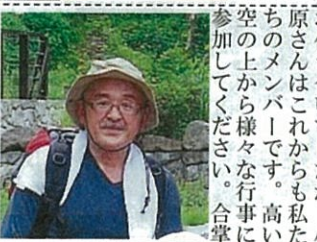 原さんはこれからも私た
ちのメンバーです。高い
空の上から様々な行事に
参加してください。合掌